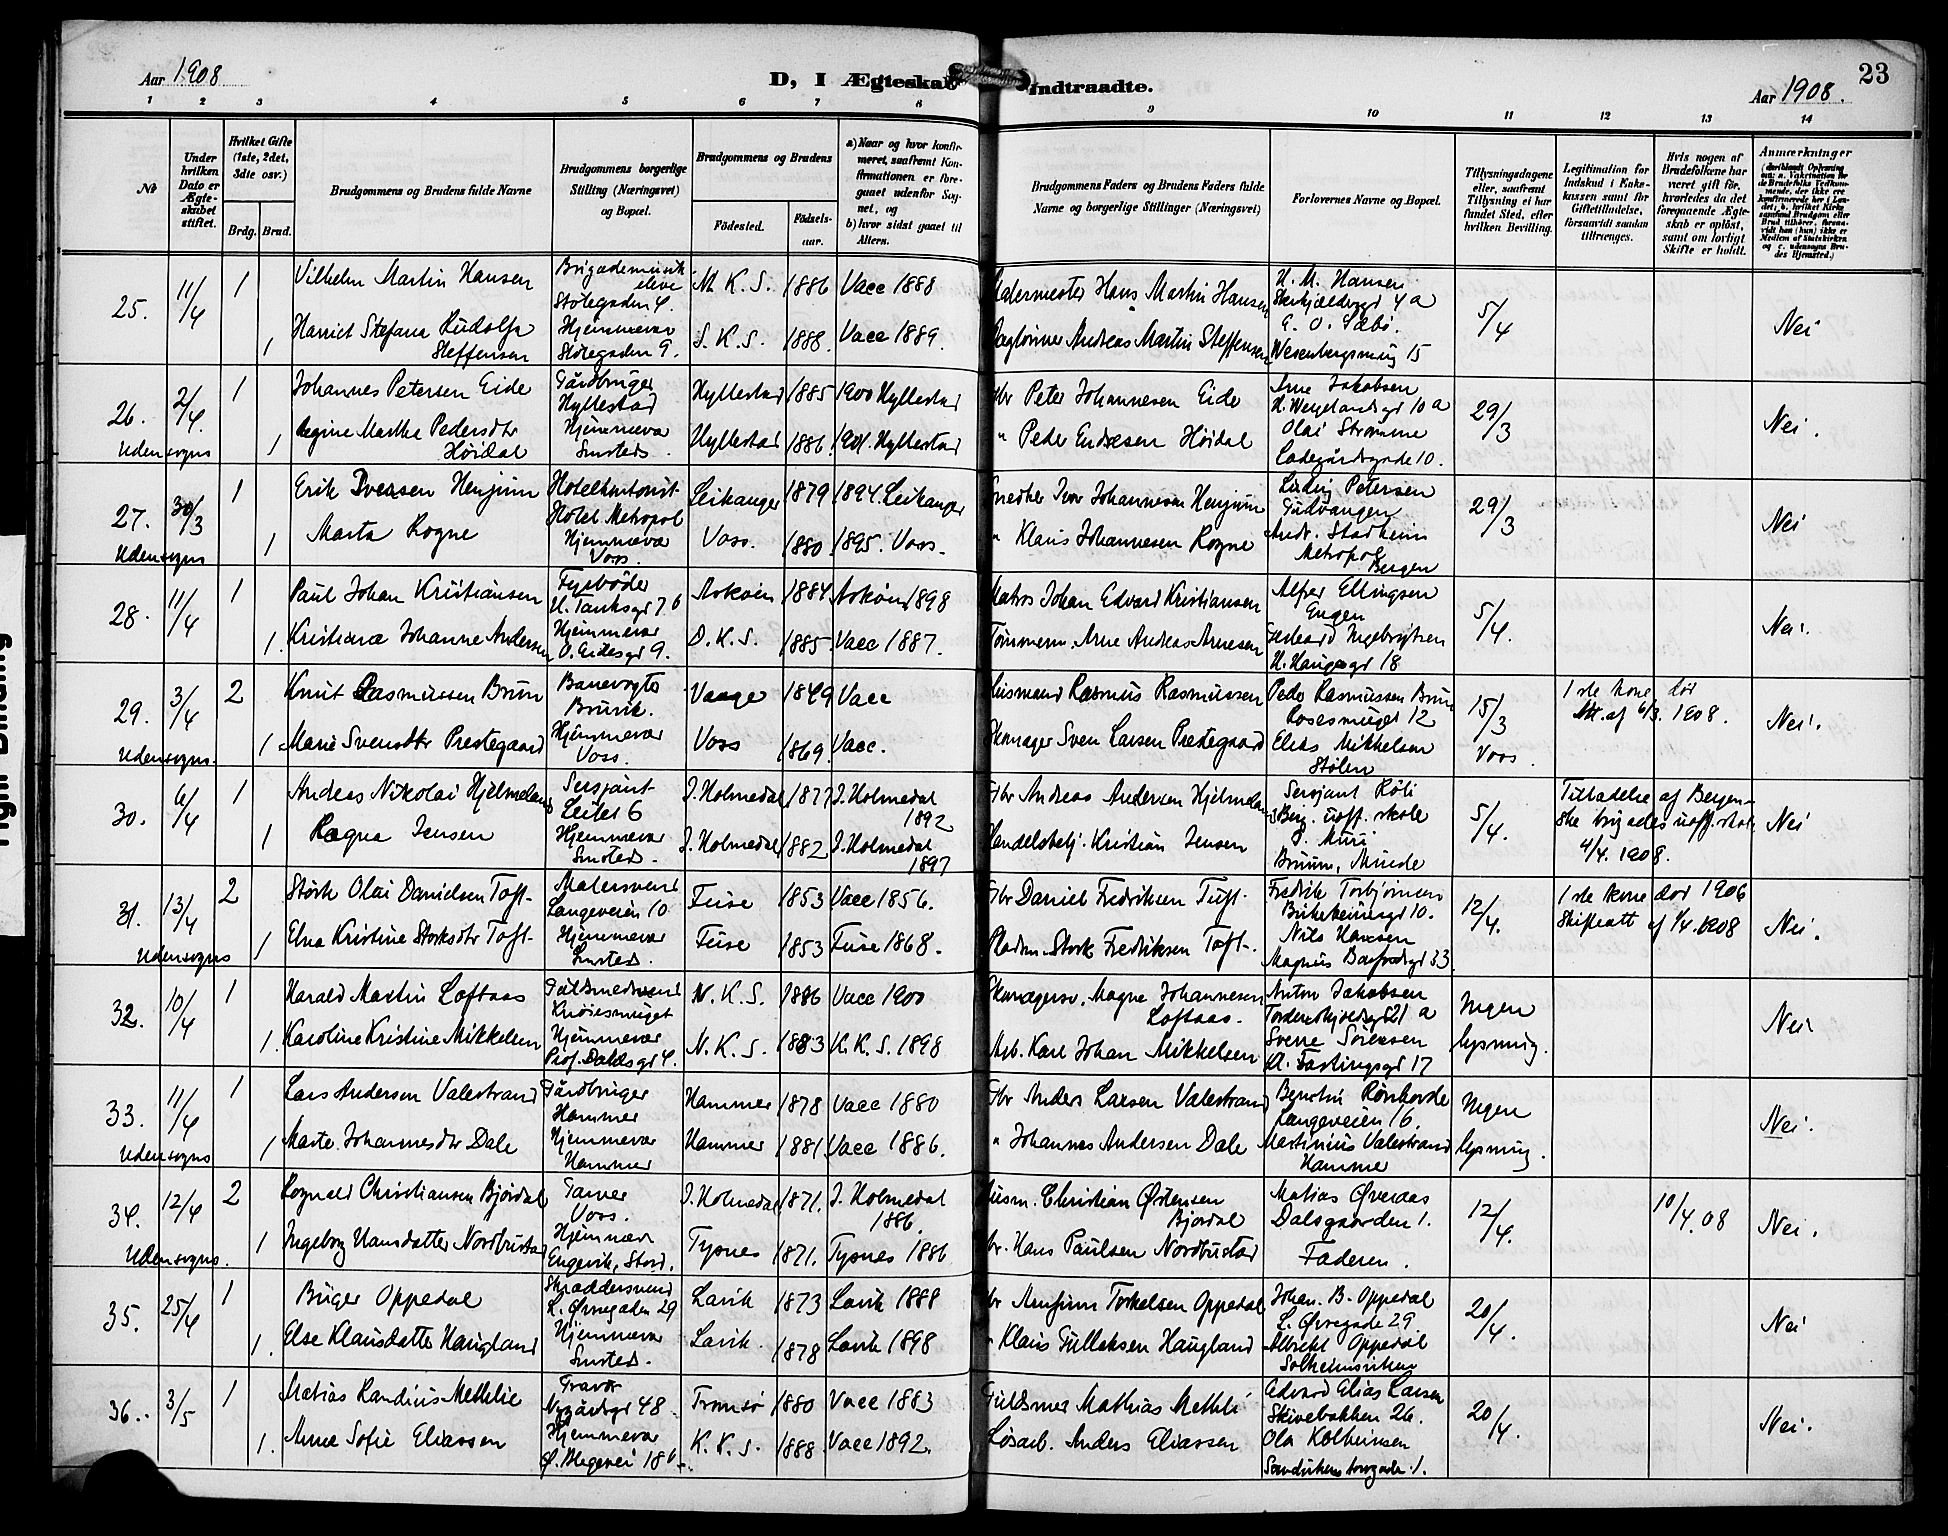 Aar 1908
D, I Ægteskab indtraadte.
Aar 1908.
23
1 2 3 4 5 6 7 8 9 10 11 12 13 14
No
Under hvilken Dato er Ægteskabet stiftet.
Hvilket Gifte (1ste, 2det, 3die osv.)
Brdg. Brud.
Brudgommens og Brudens fulde Navne
Brudgommens borgerlige Stilling (Næringsvei) og Bopæl.
Brudgommens og Brudens
Fødested.
Fødselsaar.
a) Naar og hvor konfirmeret, saafremt Konfirmationen er foregaaet udenfor Sognet, og
b) hvor sidst gaaet til Alters.
Brudgommens Faders og Brudens Faders fulde Navne og borgerlige Stillinger (Næringsvei)
Forlovernes Navne og Bopæl.
Tillysningsdagene eller, saafremt Tillysning ei har fundet Sted, efter hvilken Bevilling.
Legitimation for Indskud i Enkekassen samt for Giftetilladelse, forsaavidt saadan tiltrænges.
Hvis nogen af Brudefolkene har været gift før, hvorledes da det foregaaende Ægteskab er opløst, samt om lovligt Skifte er holdt.
Anmærkninger
25. 11/4 1 Vilhelm Martin Hansen Brigademusikelev Stølegaden 4. N. K. S. 1886 Vacc 1888 Malermester Hans Martin Hansen H. M. Hansen 4 a 5/4 Nei
1 Harriet Stefana Rudolfa Steffensen Hjemmevær Stølegaden 9. D. K. S. 1888. Vacc 1889. Daglønner Andreas Martin Steffensen G. O. Sæbø. Wesenbergsmug 15
26. 2/4. 1 Johannes Petersen Eide Gårdbruger Hyllestad Hyllestad 1885 1900 Hyllestad Gbr Peter Johannesen Eide Arne Jakobsen H. Wergelandsgd 10 a 29/3 Nei.
Udensogns 1 Regine Martha Pedersdtr Høidal Hjemmevær Smsteds. Hyllestad 1886. 1901. Hyllestad " Peder Endresen Høidal Olai Strømme Ladegårdsgade 10.
27. 30/3 1 Erik Iversen Henjum Hotelkontorist Hotel Metropol Leikanger 1879 1894. Leikanger Snedker Ivar Johannesen Henjum Ludvig Petersen Gudvangen 29/3 Nei
Udensogns 1 Marta Rogne Hjemmevær Voss. Voss. 1880. 1895. Voss. " Klaus Johannesen Rogne Andr. Stadheim Metropol Bergen
28. 11/4 1 Paul Johan Kristiansen Fyrbøder U. Tanksgd 7 b Askøen 1884. Askøen 1898 Matros Johan Edvard Kristiansen Alfred Ellingsen Engen 5/4. Nei.
1. Kristiana Johanne Andersen Hjemmevær O. Eidesgd 9. D. K. S. 1885. Vacc 1887. Tømmerm. Arne Andreas Arnesen Ingebrigtsen H. Haugesgd 18
29. 3/4 2 Knut Rasmussen Brun Banevogter Brunk. Vaage 1849 Vacc Husmand Rasmus Rasmussen Peder Rasmussen Brun Rosesmuget 12 15/3 Voss. 1ste kone død Att. af 6/3. 1908. Nei.
Udensogns. 1 Marie Svensdtr Prestegaard Hjemmevær Voss. Voss 1869. Vacc. Skomager Sven Larsen Prestegaard Elias Mikkelsen Stølen
30. 6/4 1 Andreas Nikolai Hjelmeland Sersjant Leitet 6 I. Holmedal 1877 I. Holmedal 1892 Gbr Andreas Andersen Hjelmeland Sersjant Røti Berg. uoff. skole 5/4. Tilladelse af Bergenske brigades uoff. skole 4/4. 1908. Nei
1 Ragna Jensen Hjemmevær Smsteds. I. Holmedal 1882 I. Holmedal 1897 Handelsbetj. Kristian Jensen J. Muri Bruun, Minde
31. 13/4 2 Størk Olai Danielsen Toft Malersvend Langeveien 10 Fuse 1853 Vacc 1856. Gbr Daniel Fredriksen Tuft. Fredrik Torbjørnsen Birkebeinersgd 10. 12/4. 1ste kone død 1906 Skifteatt af 1/4. 1908 Nei.
Udensogns 1 Elna Kristine Storksdtr Toft Hjemmevær Smsteds. Fuse 1853 Fuse 1868. Stork Fredriksen Toft. Nils Hansen Magnus Barfodsgd 33
32. 10/4 1 Harald Martin Loftaas Guldsmedsvend Knøsesmuget N. K. S. 1886 Vacc 1900 Magne Johannesen Loftaas. Anton Jakobsen Tordenskjoldsgd 21 a Ingen lysning. Nei
1. Karoline Kristine Mikkelsen Hjemmevær Prof. Dahlsgd 4. N. K. S. 1883 K. K. S. 1898 Arb. Karl Johan Mikkelsen Sverre Sørensen Cl. Fastingsgd 17
33. 11/4 1 Lars Andersen Valestrand Gårdbruger Hammer Hammer 1878 Vacc 1880 Gbr Anders Larsen Valestrand Rønhovde Langeveien 16. Ingen lysning. Nei.
Udensogns 1 Marte Johannesdtr Dale Hjemmevær Hammer Hammer 1881. Vacc 1886. " Johannes Andersen Dale Martinius Valestrand Hammer
34. 12/4 2 Rognald Christiansen Bjordal Garver Voss. I. Holmedal 1871. I. Holmedal 1886. Husm. Christian Østensen Bjordal Matias Øvredas Dalsgaarden 1. 12/4. 10/4. 08 Nei.
Udensogns. 1 Ingeborg Hansdatter Nordbustad Hjemmevær Engevik, Stord. Tysnes 1871. Tysnes 1886 Gbr. Hans Paulsen Nordbustad Faderen.
35. 25/4 1 Birger Oppedal Skræddersvend L. Øvregaden 29 Lavik 1873 Lavik 1888 Gbr Arnfinn Torkelsen Oppedal Johan. B. Oppedal L. Øvregade 29 20/4. Nei
1. Else Klausdatter Haugland Hjemmevær Smsteds. Lavik. 1878 Lavik 1898 " Klaus Gulleksen Haugland Albrikt Oppedal Solheimsviken
36. 3/5 1 Matias Randius Methlie Gravør Nygårdsgd 48 Tromsø 1880 Vacc 1883 Guldsmed Mathias Methli Edvard Elias Larsen Skivebakken 26. 20/4. Nei.
1. Anna Sofie Eliassen Hjemmevær Ø. Blegevei 18 b K. K. S. 1888 Vacc 1892. Løsarb. Anders Eliassen Ola Kolbeinsen Sandvikens torvgade 1.